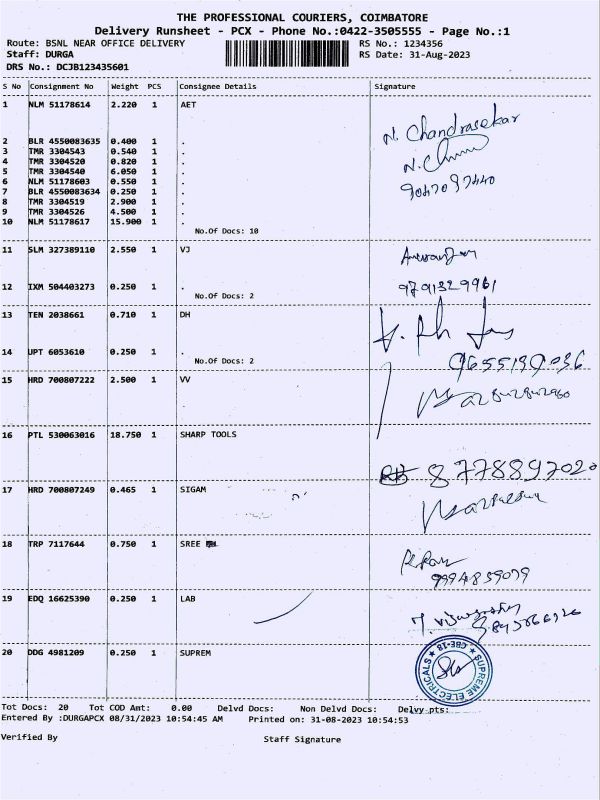 THE PROFESSIONAL COURIERS, COIMBATORE
Delivery Runsheet - PCX - Phone No.:0422-3505555 - Page No.:1
Route: BSNL NEAR OFFICE DELIVERY RS No.: 1234356
Staff: DURGA RS Date: 31-Aug-2023
DRS No.: DCJB123435601
S No Consignment No Weight PCS Consignee Details Signature
1 NLM 51178614 2.220 1 AET
N. Chandrasekar
2 BLR 4550083635 0.400 1 .
3 TMR 3304543 0.540 1 .
4 TMR 3304520 0.820 1 .
5 TMR 3304540 6.050 1 .
6 NLM 51178603 0.550 1 .
7 BLR 4550083634 0.250 1 .
8 TMR 3304519 2.900 1 .
9 TMR 3304526 4.500 1 .
10 NLM 51178617 15.900 1 .
No.Of Docs: 10
11 SLM 327389110 2.550 1 VJ
12 IXM 504403273 0.250 1 . 9791329961
No.Of Docs: 2
13 TEN 2038661 0.710 1 DH
14 UPT 6053610 0.250 1 .
No.Of Docs: 2 9655190036
15 HRD 700807222 2.500 1 VV
16 PTL 530063016 18.750 1 SHARP TOOLS
8778897020
17 HRD 700807249 0.465 1 SIGAM
18 TRP 7117644 0.750 1 SREE
9994839079
19 EDQ 16625390 0.250 1 LAB
20 DDG 4981209 0.250 1 SUPREM
SUPREME ELECTRICALS CBE-18
Tot Docs: 20 Tot COD Amt: 0.00 Delvd Docs: Non Delvd Docs: Delvy pts:
Entered By :DURGAPCX 08/31/2023 10:54:45 AM Printed on: 31-08-2023 10:54:53
Verified By Staff Signature